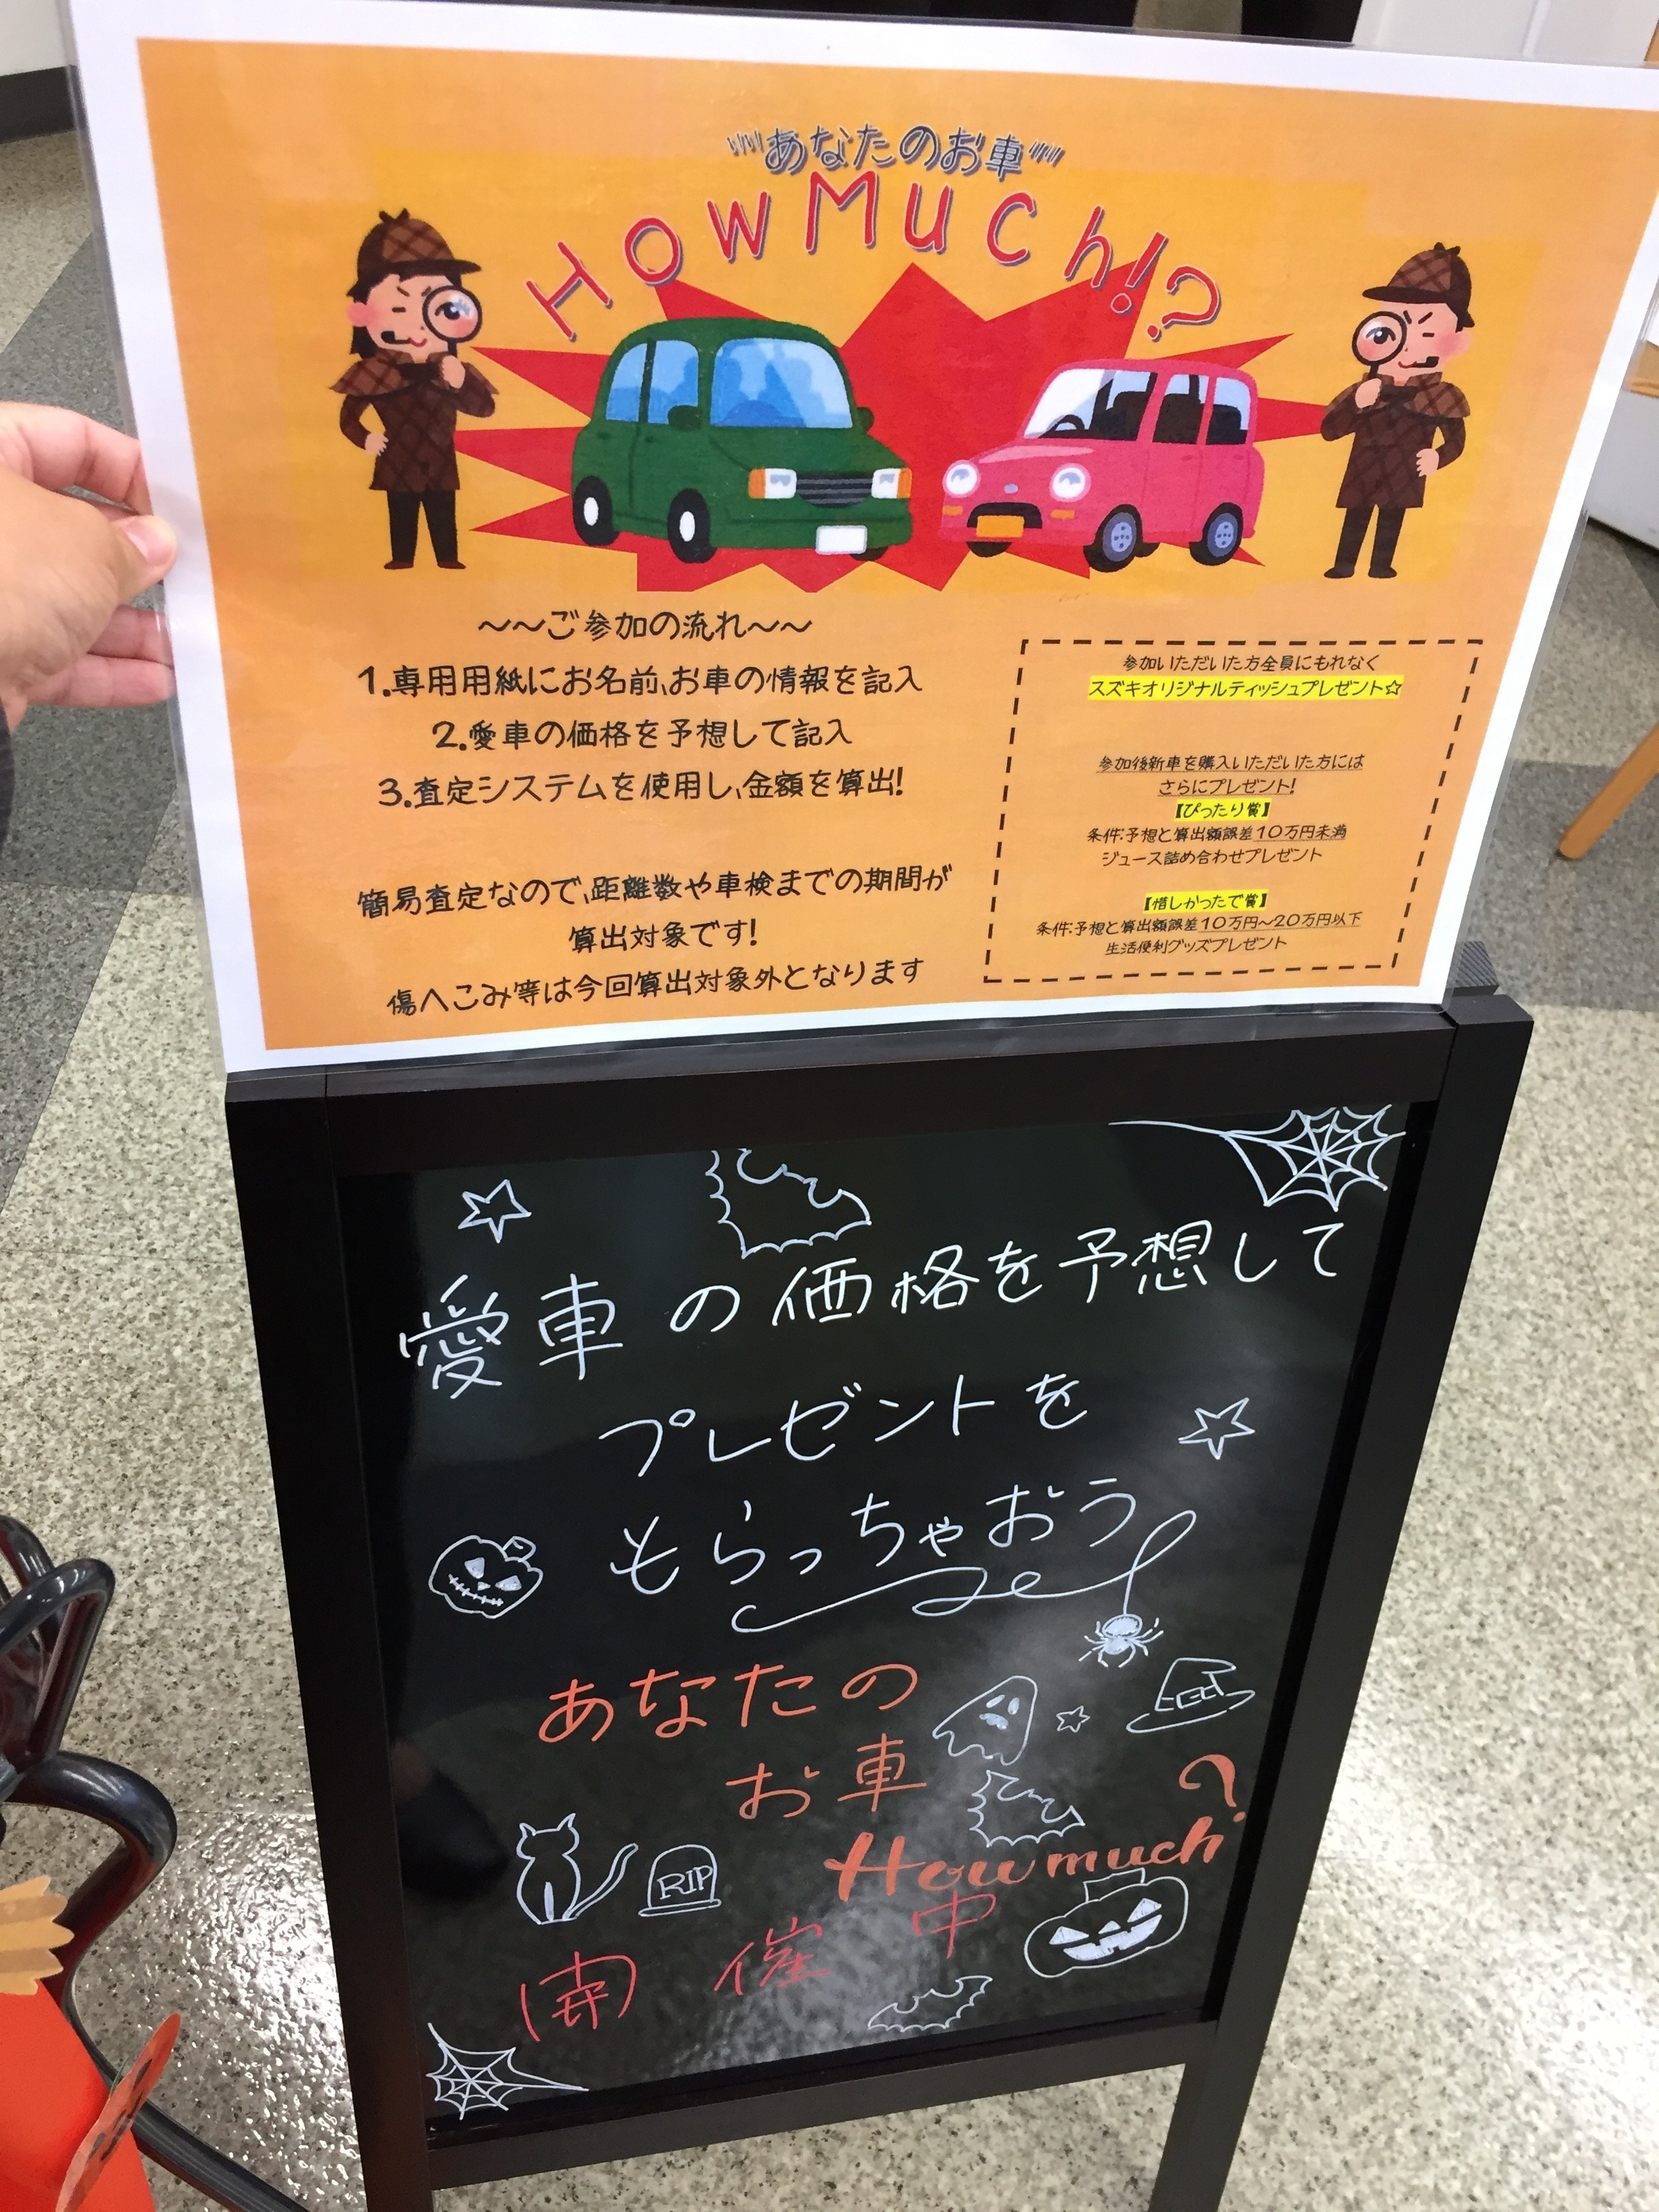 あなたのお車
HowMuch!?
～～ご参加の流れ～～
1.専用用紙にお名前、お車の情報を記入
2.愛車の価格を予想して記入
3.査定システムを使用し、金額を算出!
簡易査定なので、距離数や車検までの期間が
算出対象です!
傷へこみ等は今回算出対象外となります
参加いただいた方全員にもれなく
スズキオリジナルティッシュプレゼント☆
参加後新車を購入いただいた方には
さらにプレゼント!
【ぴったり賞】
条件:予想と算出額誤差10万円未満
ジュース詰め合わせプレゼント
【惜しかったで賞】
条件:予想と算出額誤差10万円～20万円以下
生活便利グッズプレゼント
愛車の価格を予想して
プレゼントを
もらっちゃおう
あなたの
お車
How much?
RIP
開催中